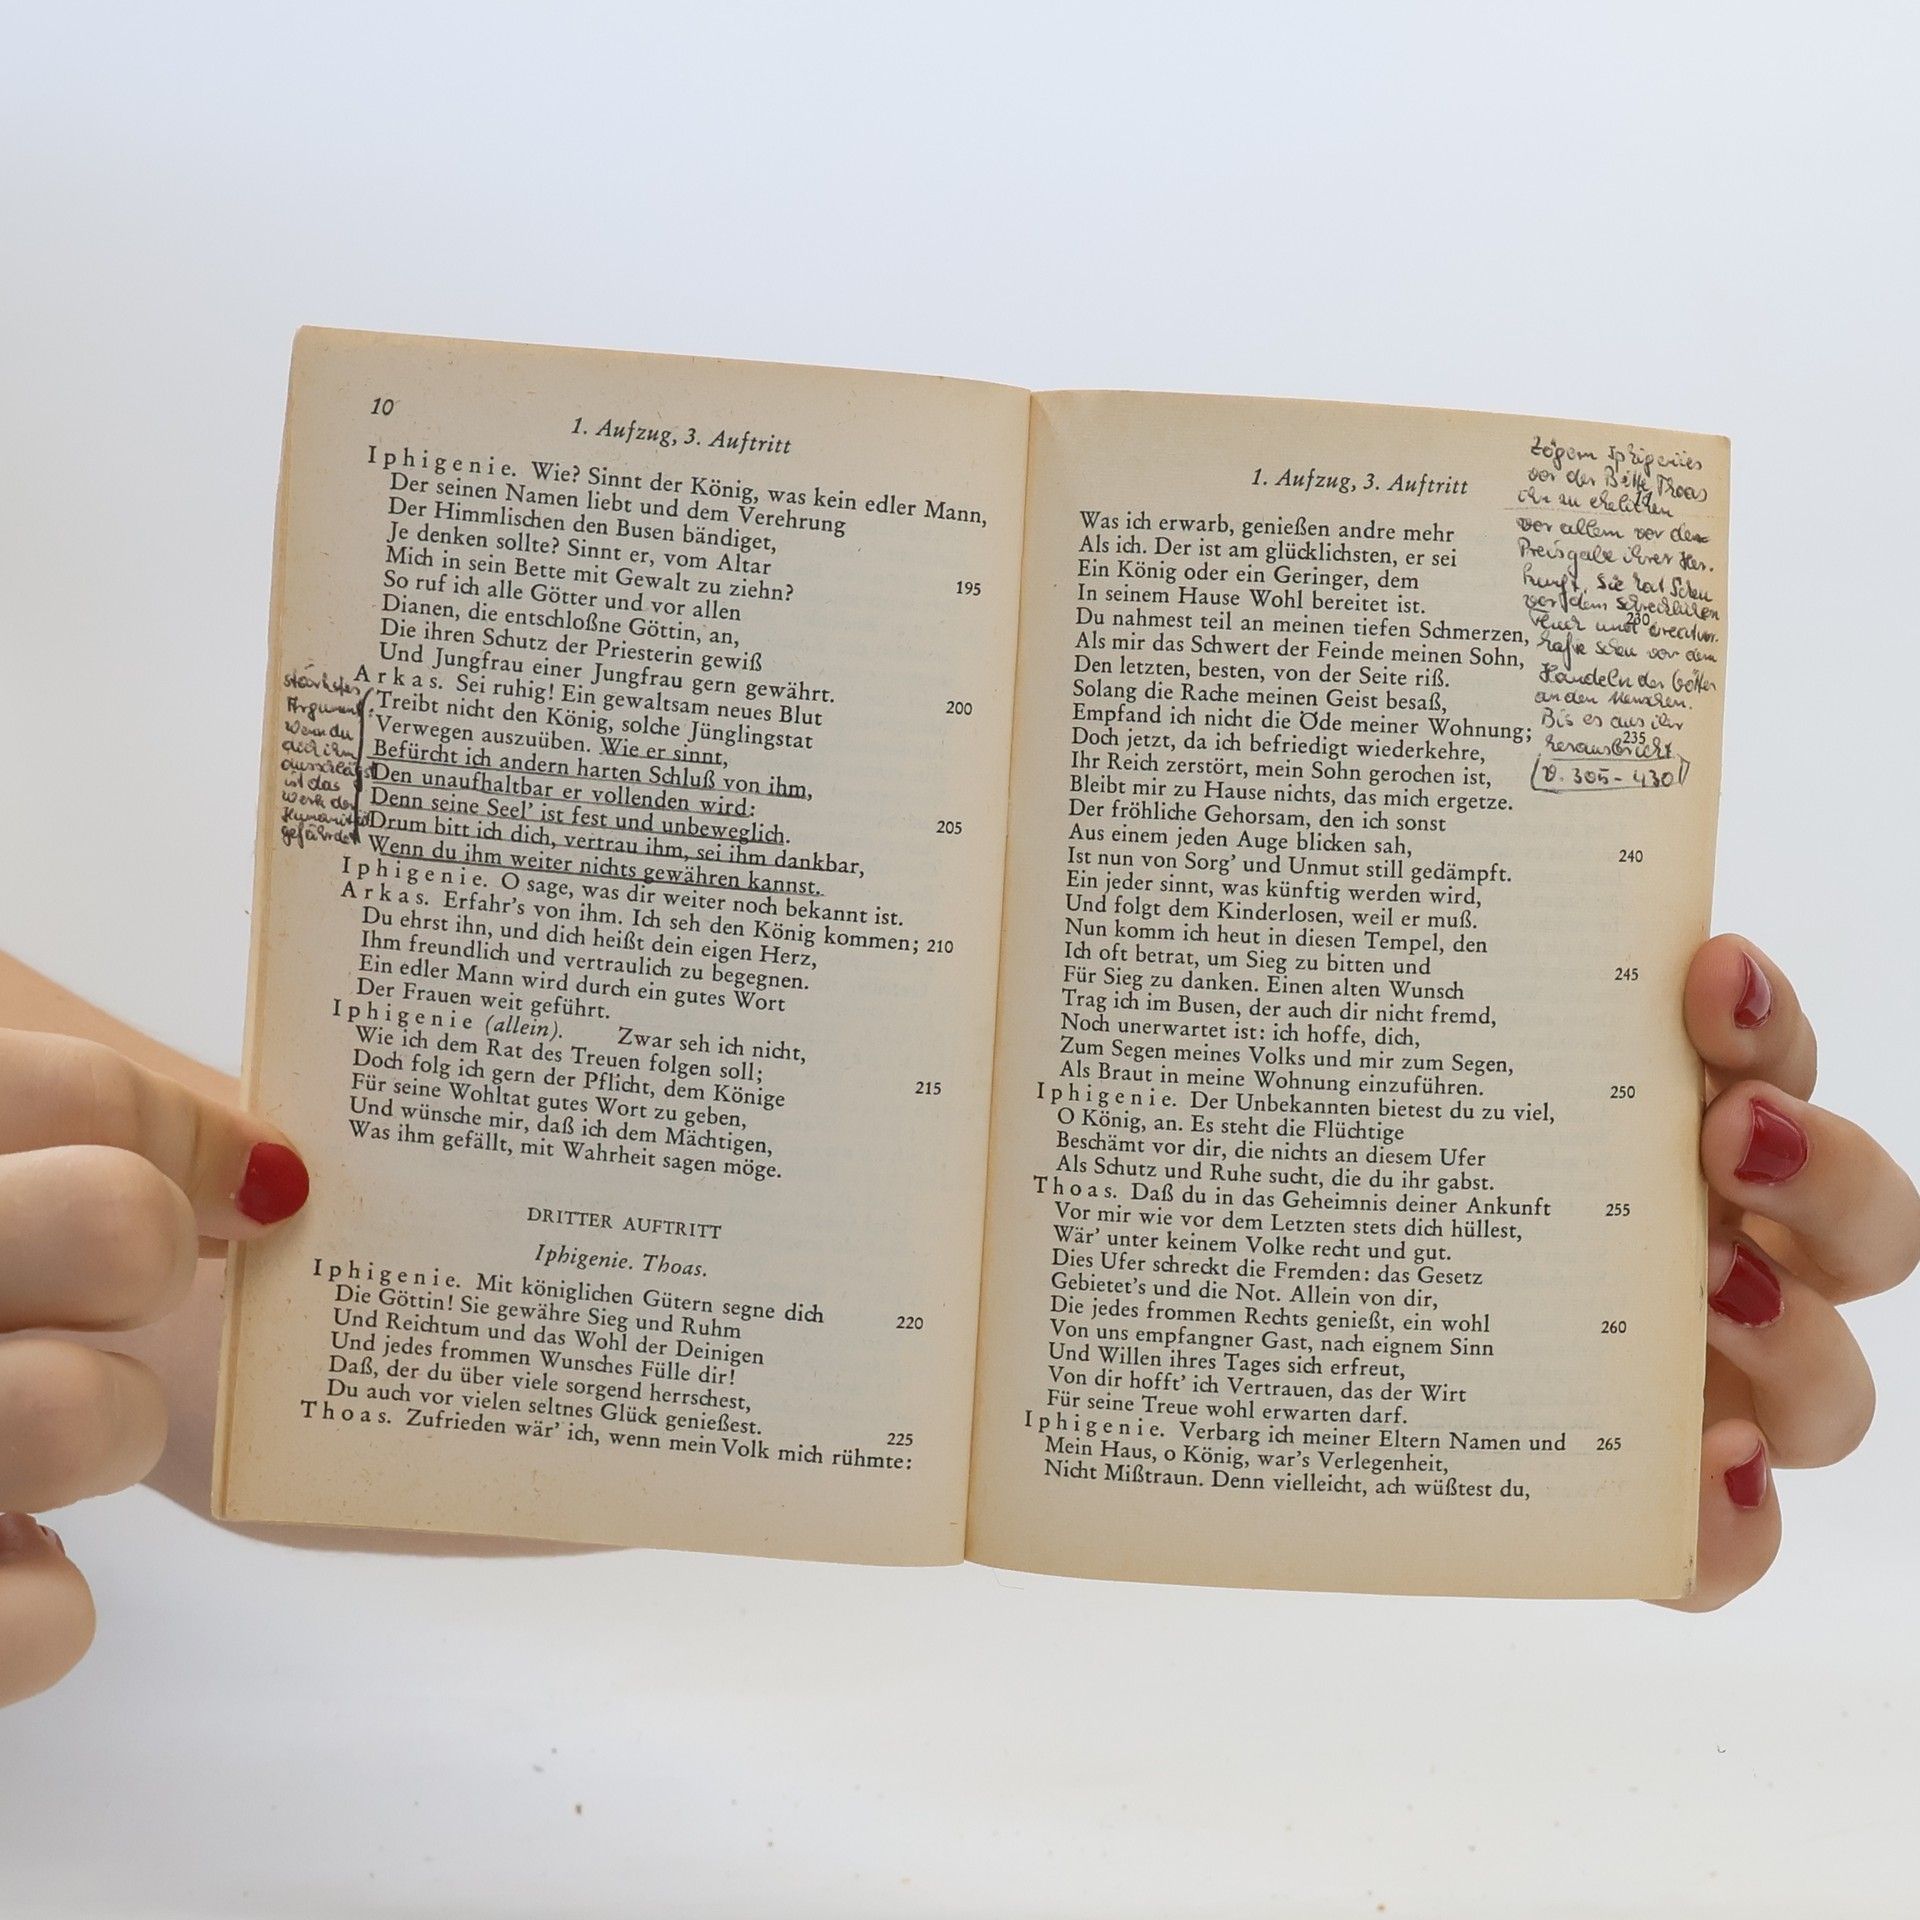 10
1. Aufzug, 3. Auftritt
Iphigenie. Wie? Sinnt der König, was kein edler Mann,
Der seinen Namen liebt und dem Verehrung
Der Himmlischen den Busen bändiget,
Je denken sollte? Sinnt er, vom Altar
Mich in sein Bette mit Gewalt zu ziehn? 195
So ruf ich alle Götter und vor allen
Dianen, die entschloßne Göttin, an,
Die ihren Schutz der Priesterin gewiß
Und Jungfrau einer Jungfrau gern gewährt.
Arkas. Sei ruhig! Ein gewaltsam neues Blut 200
Treibt nicht den König, solche Jünglingstat
Verwegen auszuüben. Wie er sinnt,
Befürcht ich andern harten Schluß von ihm,
Den unaufhaltbar er vollenden wird:
Denn seine Seel' ist fest und unbeweglich. 205
Drum bitt ich dich, vertrau ihm, sei ihm dankbar,
Wenn du ihm weiter nichts gewähren kannst.
Iphigenie. O sage, was dir weiter noch bekannt ist.
Arkas. Erfahr's von ihm. Ich seh den König kommen; 210
Du ehrst ihn, und dich heißt dein eigen Herz,
Ihm freundlich und vertraulich zu begegnen.
Ein edler Mann wird durch ein gutes Wort
Der Frauen weit geführt.
Iphigenie (allein). Zwar seh ich nicht,
Wie ich dem Rat des Treuen folgen soll;
Doch folg ich gern der Pflicht, dem Könige 215
Für seine Wohltat gutes Wort zu geben,
Und wünsche mir, daß ich dem Mächtigen,
Was ihm gefällt, mit Wahrheit sagen möge.
DRITTER AUFTRITT
Iphigenie. Thoas.
Iphigenie. Mit königlichen Gütern segne dich 220
Die Göttin! Sie gewähre Sieg und Ruhm
Und Reichtum und das Wohl der Deinigen
Und jedes frommen Wunsches Fülle dir!
Daß, der du über viele sorgend herrschest,
Du auch vor vielen seltnes Glück genießest. 225
Thoas. Zufrieden wär' ich, wenn mein Volk mich rühmte:
stärkstes
Argument:
Wenn du
dich ihm
ausschlägst
ist das
Werk der
Humanität
gefährdet
1. Aufzug, 3. Auftritt 11
Was ich erwarb, genießen andre mehr
Als ich. Der ist am glücklichsten, er sei
Ein König oder ein Geringer, dem
In seinem Hause Wohl bereitet ist.
Du nahmest teil an meinen tiefen Schmerzen, 230
Als mir das Schwert der Feinde meinen Sohn,
Den letzten, besten, von der Seite riß.
Solang die Rache meinen Geist besaß,
Empfand ich nicht die Öde meiner Wohnung;
Doch jetzt, da ich befriedigt wiederkehre, 235
Ihr Reich zerstört, mein Sohn gerochen ist,
Bleibt mir zu Hause nichts, das mich ergetze.
Der fröhliche Gehorsam, den ich sonst
Aus einem jeden Auge blicken sah,
Ist nun von Sorg' und Unmut still gedämpft. 240
Ein jeder sinnt, was künftig werden wird,
Und folgt dem Kinderlosen, weil er muß.
Nun komm ich heut in diesen Tempel, den
Ich oft betrat, um Sieg zu bitten und
Für Sieg zu danken. Einen alten Wunsch 245
Trag ich im Busen, der auch dir nicht fremd,
Noch unerwartet ist: ich hoffe, dich,
Zum Segen meines Volks und mir zum Segen,
Als Braut in meine Wohnung einzuführen.
Iphigenie. Der Unbekannten bietest du zu viel, 250
O König, an. Es steht die Flüchtige
Beschämt vor dir, die nichts an diesem Ufer
Als Schutz und Ruhe sucht, die du ihr gabst.
Thoas. Daß du in das Geheimnis deiner Ankunft 255
Vor mir wie vor dem Letzten stets dich hüllest,
Wär' unter keinem Volke recht und gut.
Dies Ufer schreckt die Fremden: das Gesetz
Gebietet's und die Not. Allein von dir,
Die jedes frommen Rechts genießt, ein wohl 260
Von uns empfangner Gast, nach eignem Sinn
Und Willen ihres Tages sich erfreut,
Von dir hofft' ich Vertrauen, das der Wirt
Für seine Treue wohl erwarten darf.
Iphigenie. Verbarg ich meiner Eltern Namen und 265
Mein Haus, o König, war's Verlegenheit,
Nicht Mißtraun. Denn vielleicht, ach wüßtest du,
Zögern Iphigenies
vor der Bitte Thoas
ihn zu ehelichen
vor allem vor der
Preisgabe ihrer Her-
kunft. Sie hat Scheu
vor dem schrecklichen
Fluch und
Scheu vor dem
Handeln der Götter
an den Menschen.
Bis es aus ihr
herausbricht
V. 305 - 430